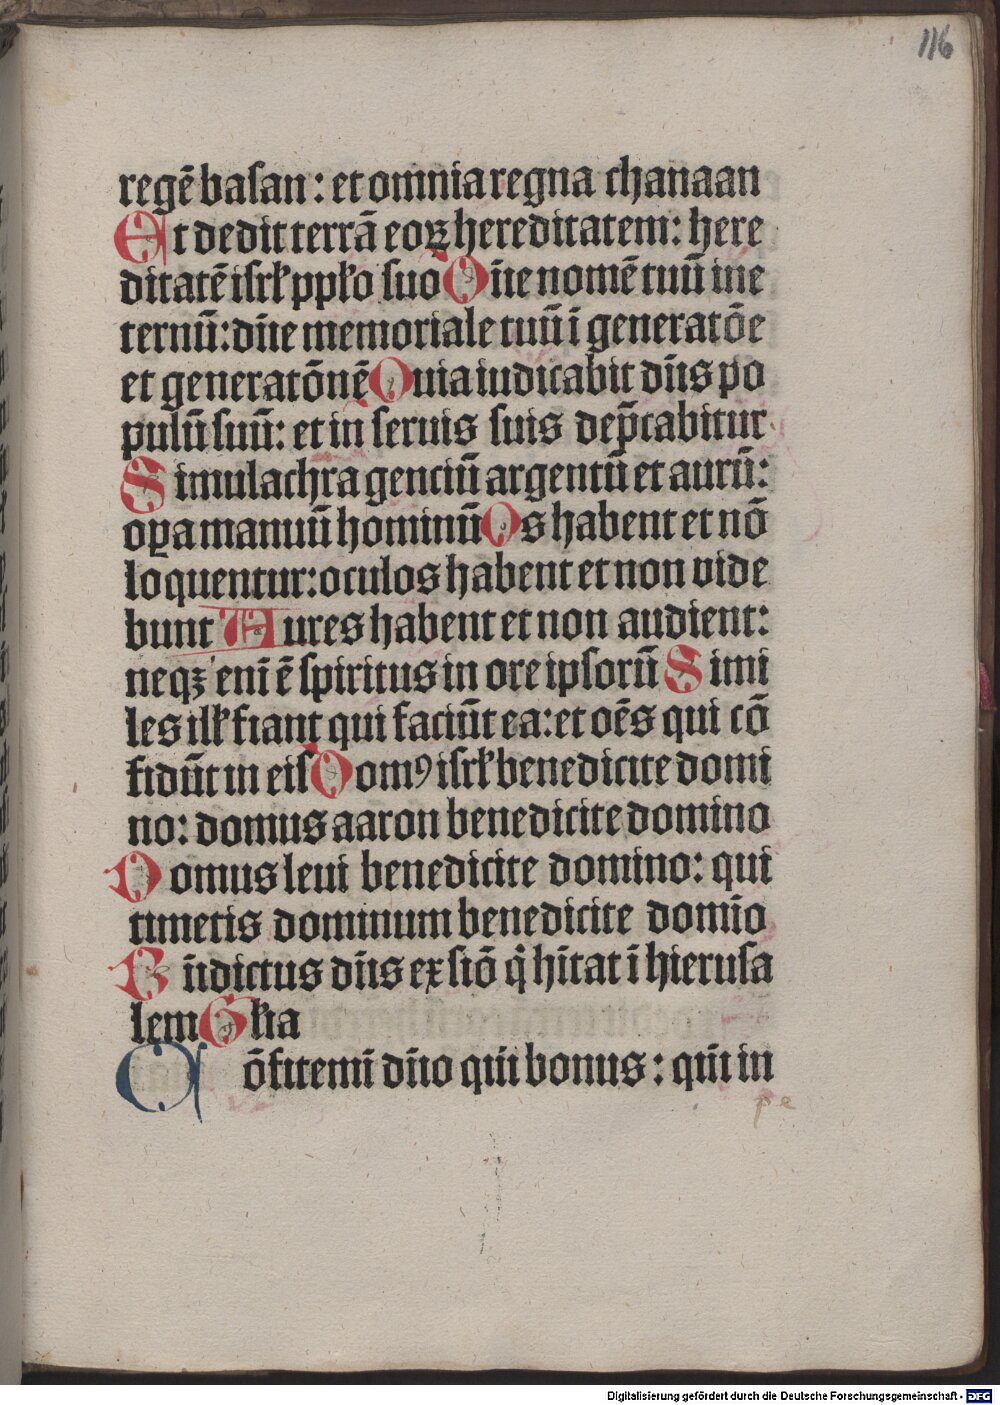 116
regē basan : et omnia regna chanaan
Et dedit terrā eoꝝ hereditatem: here
ditatē isrł ppło suo Dn̄e nomē tuū in e
ternū: dn̄e memoriale tuū ī generatōe
et generatōnē Quia iudicabit dn̄s po
pulū suū: et in seruis suis dep̄cabitur
Simulachra genciū argentū et aurū:
oꝑa manuū hominū Os habent et nō
loquentur: oculos habent et non vide
bunt Aures habent et non audient:
neqꝫ enī ē spiritus in ore ipsorū Simi
les illł fiant qui faciūt ea: et oēs qui cō
fidūt in eis Domꝰ isrł benedicite domi
no: domus aaron benedicite domino
Domus leui benedicite domino: qui
timetis dominum benedicite domīo
Bn̄dictus dn̄s ex siō q̇ hītat ī hierusa
lem Głia
Cōfitemī dn̄o qm̄ bonus : qm̄ in
pe
Digitalisierung gefördert durch die Deutsche Forschungsgemeinschaft - DFG